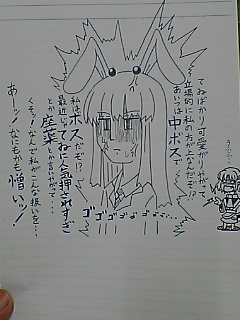 てゐばかり可愛がりやがって
立場的に私の方が上なんだぞ!?
あいつは中ボスで
私はボスだぞ!?
最近じゃてゐに人気押されすぎ
とか座薬とか言いやがって…
くそッ!なんで私がこんな扱いを…
あーッ!なにもかも憎いッ!
ゴゴゴゴゴゴゴ……
うふふ…